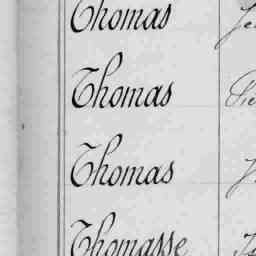 Thomas
Thomas
Thomas
Thomasse